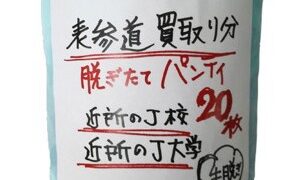 表参道 買取り分
脱ぎたて パンティ
20枚
近所のJ校
近所のJ大学
生脱ぎ